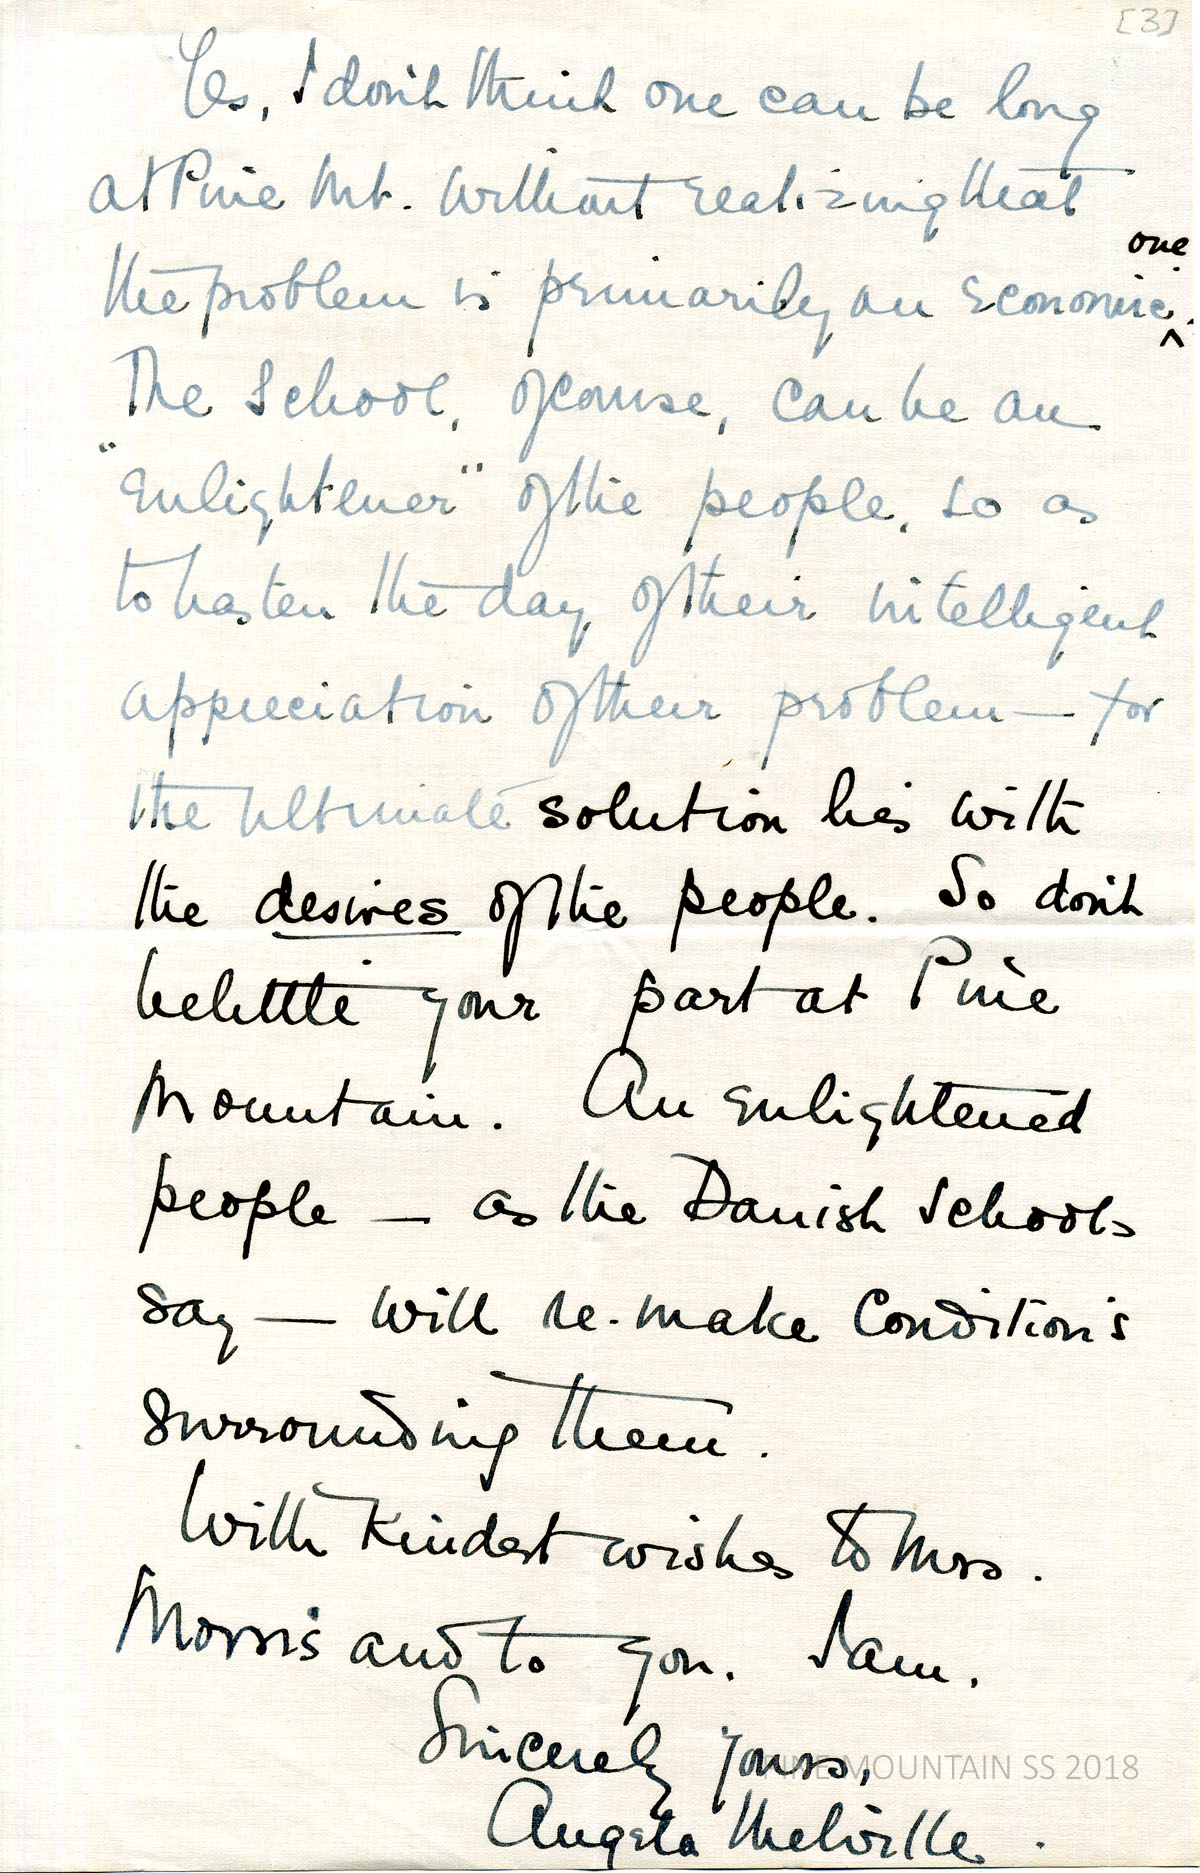 [3]
Yes, I don't think one can be long
at Pine Mt. without realizing that
the problem is primarily an economic one.
The School, of course, can be an
"enlightener" of the people, so as
to hasten the day of their intelligent
appreciation of their problem — for
the ultimate solution lies with
the desires of the people. So don't
belittle your part at Pine
Mountain. An enlightened
people — as the Danish Schools
say — will re-make Conditions
surrounding them.
With kindest wishes to Mrs.
Morris and to you. I am.
Sincerely yours,
PINE MOUNTAIN SS 2018
Angela Melville.